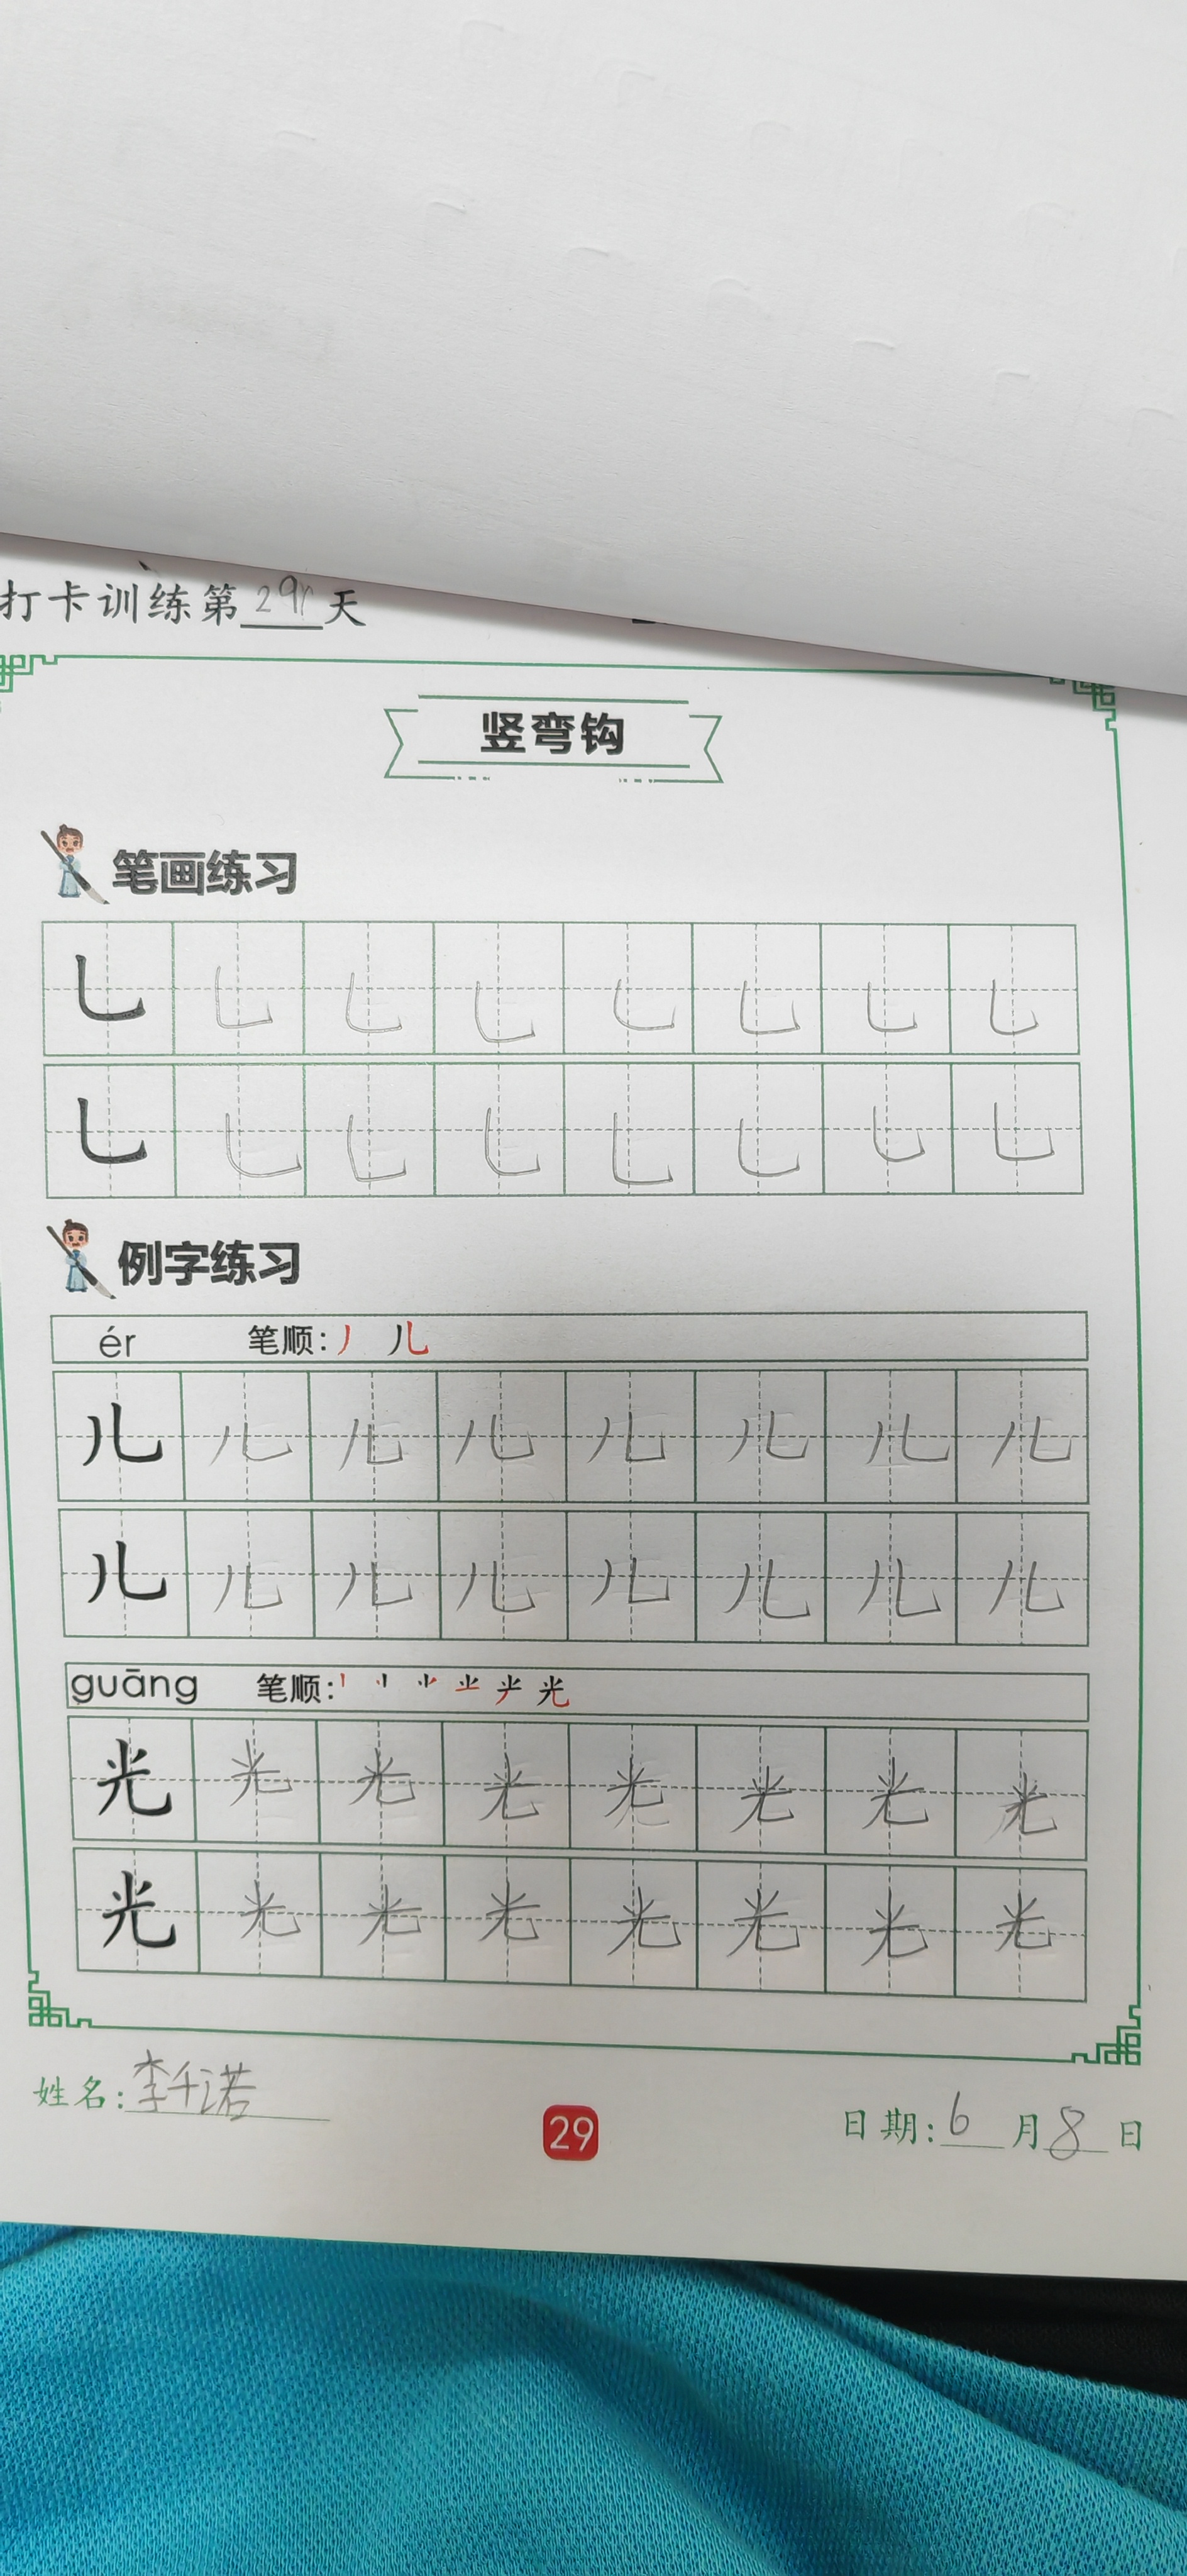 打卡训练第29天
竖弯钩
笔画练习
乚 乚 乚 乚 乚 乚 乚 乚
乚 乚 乚 乚 乚 乚 乚 乚
例字练习
ér 笔顺:丿 儿
儿 儿 儿 儿 儿 儿 儿 儿
儿 儿 儿 儿 儿 儿 儿 儿
guāng 笔顺: 光
光 光 光 光 光 光 光 光
光 光 光 光 光 光 光 光
姓名:李千诺
29
日期:6月8日